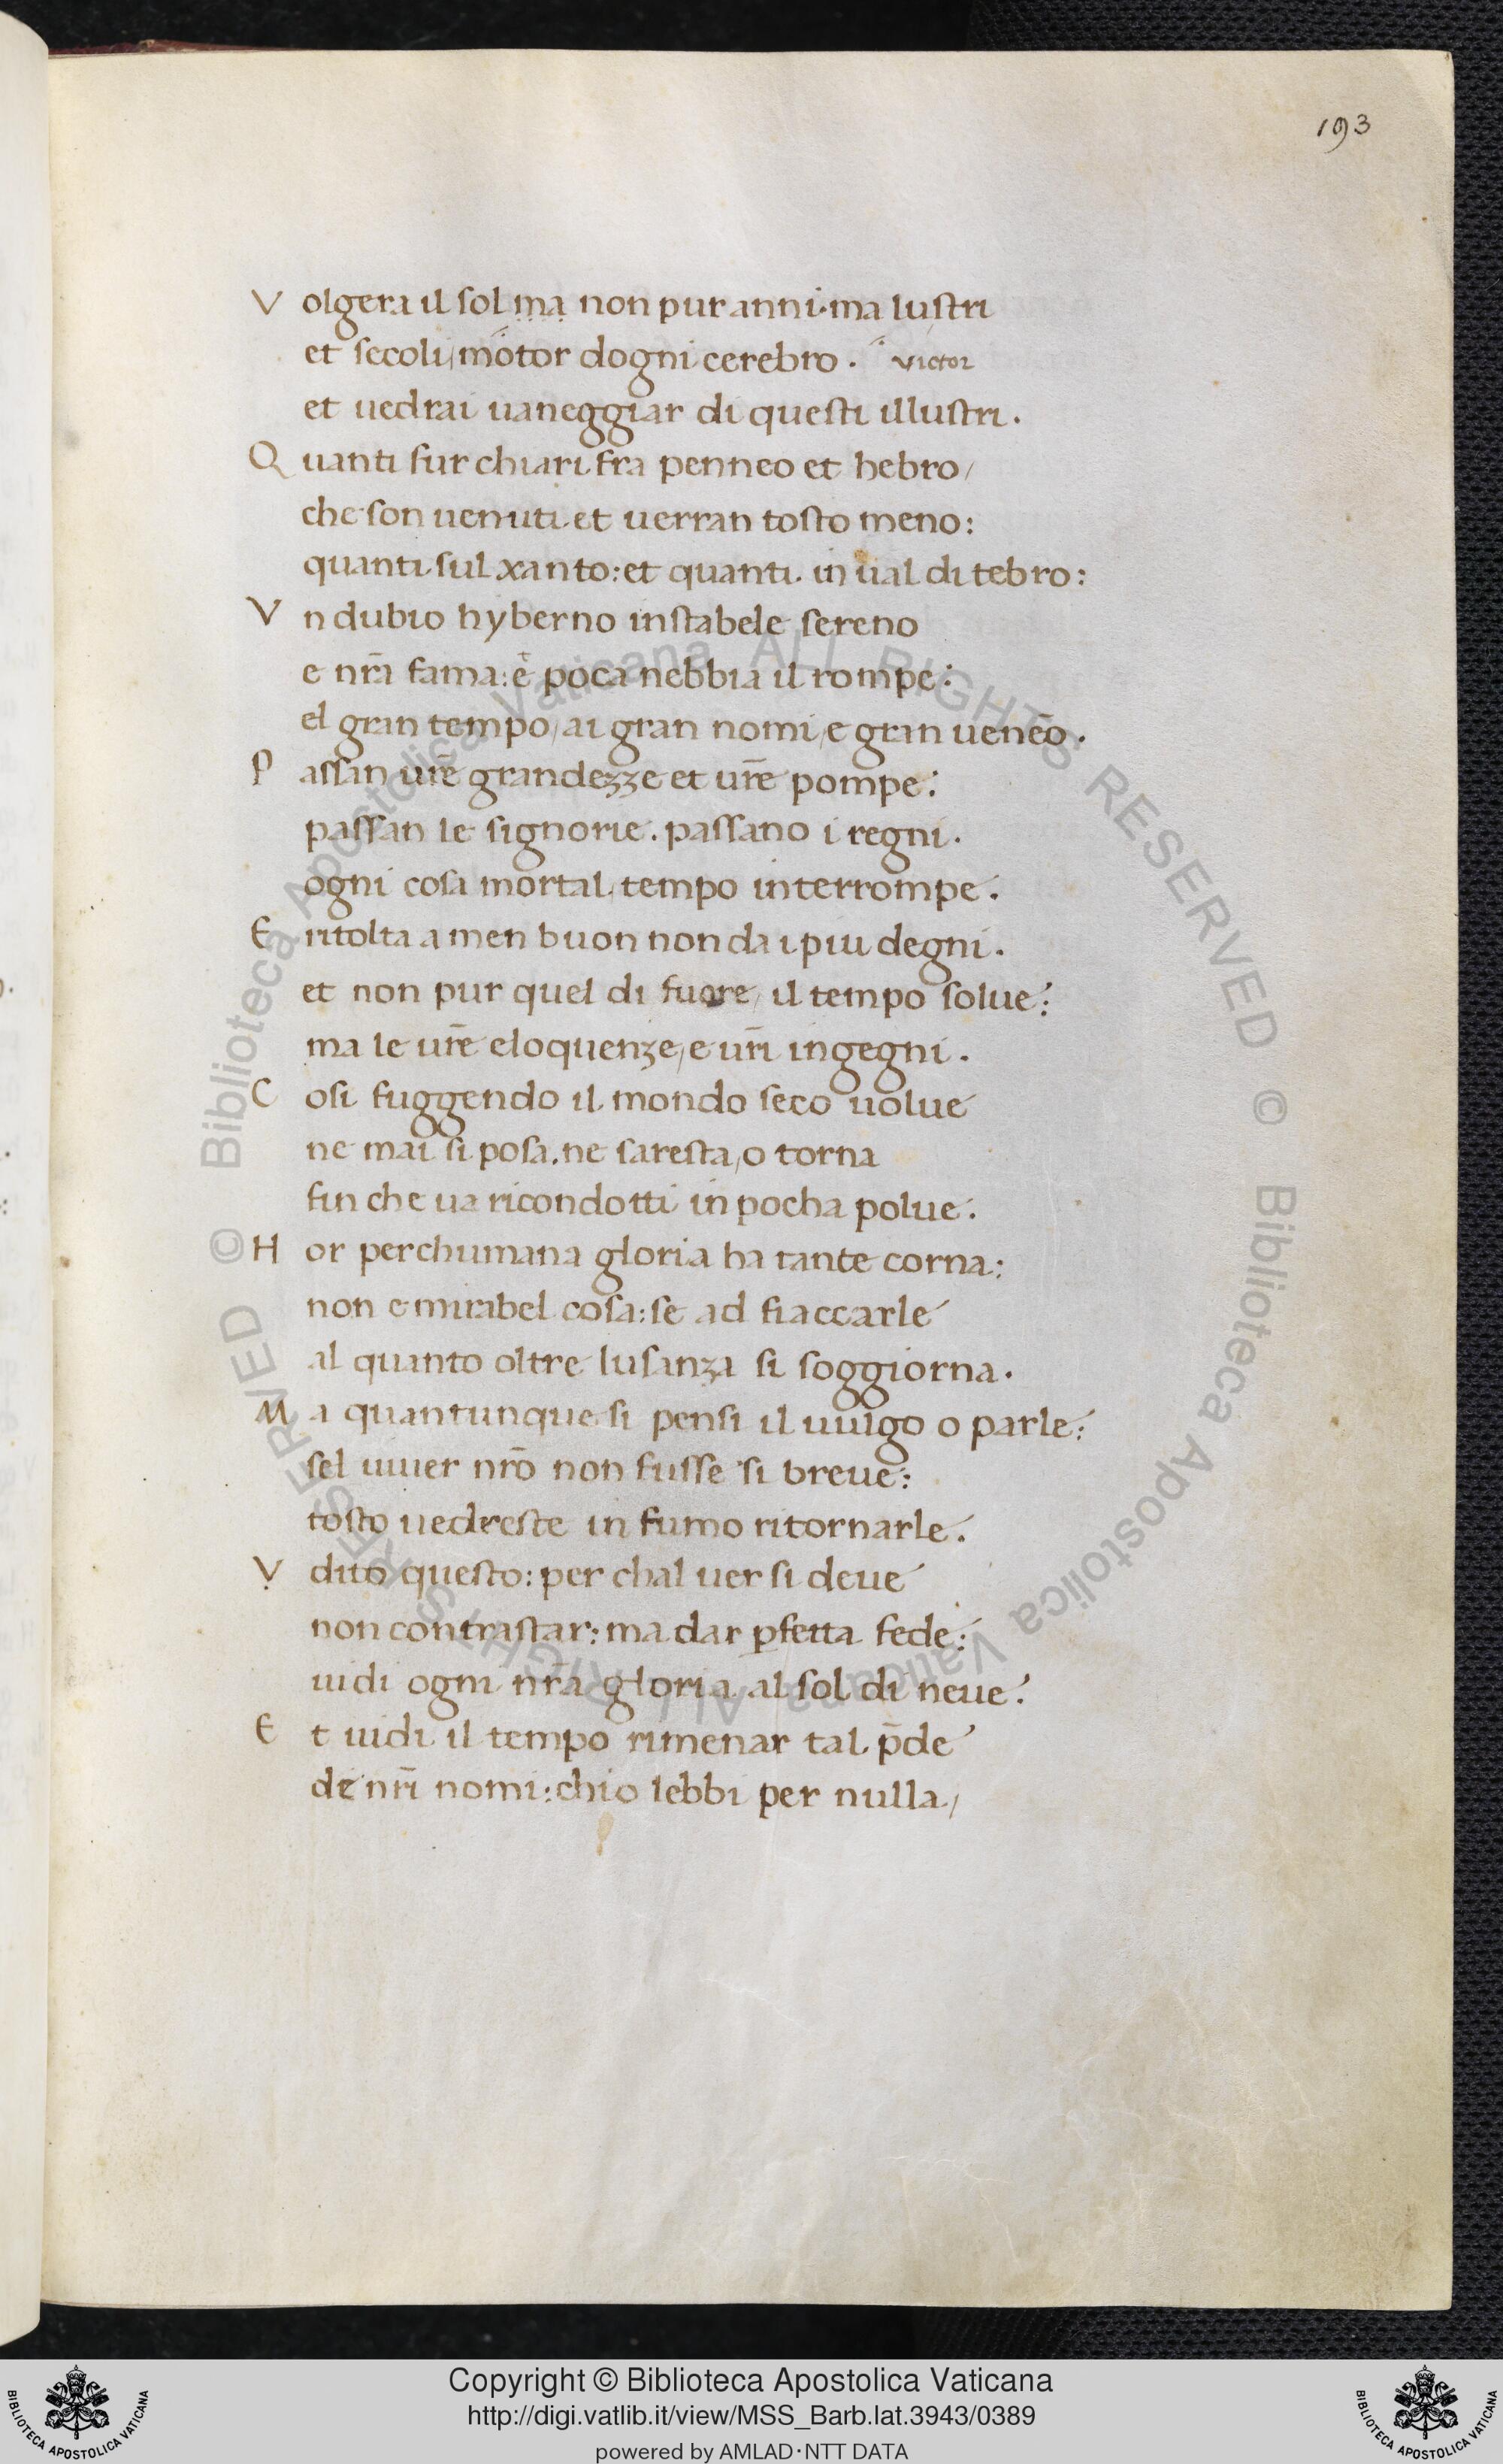 193
V olgera il sol ma non pur anni·ma lustri
et secoli/motor dogni cerebro · victor
et uedrai uaneggiar di questi illustri.
Q uanti fur chiari fra penneo et hebro/
che son uenuti et uerran tosto meno:
quanti sul xanto: et quanti in ual di tebro:
V n dubio hyberno instabele sereno
e nr̃a fama: e poca nebbia il rompe:
el gran tempo/ai gran nomi/e gran ueneno.
P assan ur̃e grandezze et ur̃e pompe:
passan le signorie. passano i regni.
ogni cosa mortal tempo interrompe.
E ritolta a men buon non da i piu degni.
et non pur quel di fuore/ il tempo solue:
ma le ur̃e eloquenze/e ur̃i ingegni.
C osi fuggendo il mondo seco uolue
ne mai si posa. ne saresta/o torna
fin che ua ricondotti in pocha polue.
H or perchumana gloria ha tante corna:
non e mirabel cosa: se ad fiaccarle
al quanto oltre lusanza si soggiorna.
M a quantunque si pensi il uulgo o parle:
sel uiuer nr̃o non fusse si breue:
tosto uedreste in fumo ritornarle.
V dito questo: per chal uer si deue
non contrastar: ma dar ꝑfetta fede:
uidi ogni nr̃a gloria al sol di neue:
E t uidi il tempo rimenar tal p̃de
de nr̃i nomi: chio lebbi per nulla/
© Biblioteca Apostolica Vaticana ALL RIGHTS RESERVED © Biblioteca Apostolica Vaticana ALL RIGHTS RESERVED
Copyright © Biblioteca Apostolica Vaticana
http://digi.vatlib.it/view/MSS_Barb.lat.3943/0389
powered by AMLAD·NTT DATA
BIBLIOTECA APOSTOLICA VATICANA
BIBLIOTECA APOSTOLICA VATICANA